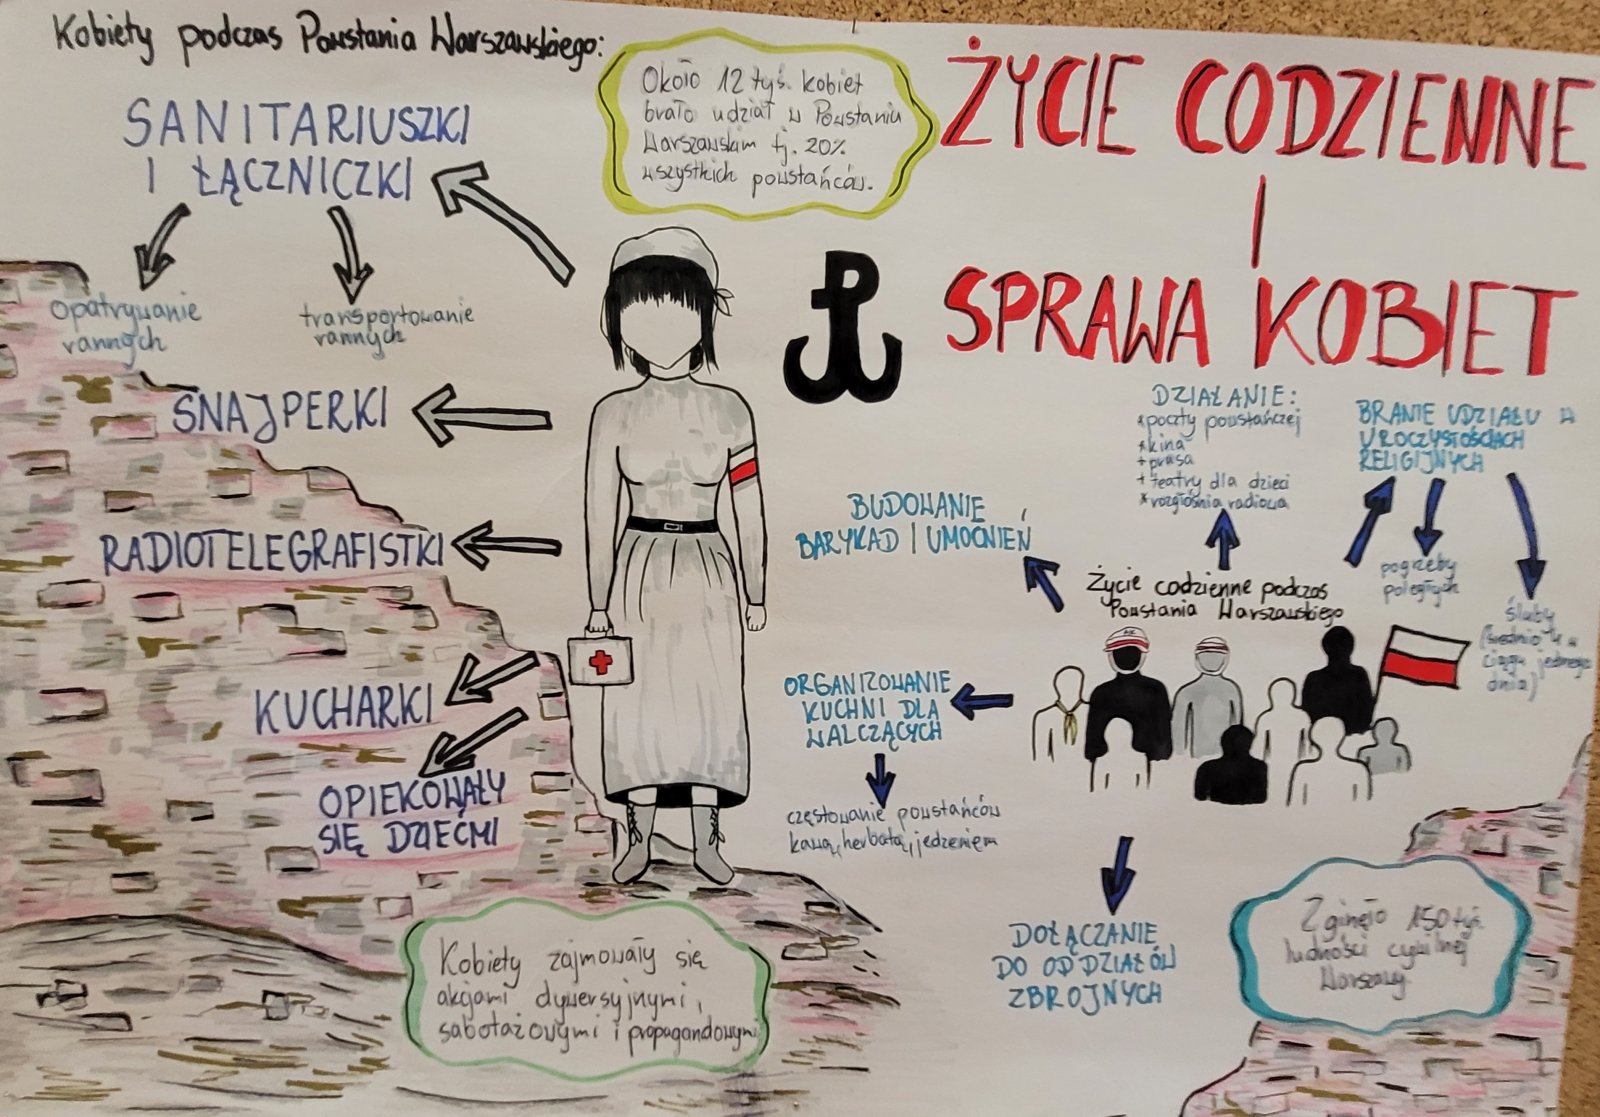 Kobiety podczas Powstania Warszawskiego:
SANITARIUSZKI
I ŁĄCZNICZKI
opatrywanie
rannych
transportowanie
rannych
SNAJPERKI
RADIOTELEGRAFISTKI
KUCHARKI
OPIEKOWAŁY
SIĘ DZIEĆMI
Około 12 tyś. kobiet
brało udział w Powstaniu
Warszawskim tj. 20%
wszystkich powstańców.
Kobiety zajmowały się
akcjami dywersyjnymi,
sabotażowymi i propagandowymi
ŻYCIE CODZIENNE
I
SPRAWA KOBIET
DZIAŁANIE:
*poczty powstańczej
*kina
+prasa
+teatry dla dzieci
*rozgłośnia radiowa
BRANIE UDZIAŁU W
UROCZYSTOŚCIACH
RELIGIJNYCH
pogrzeby
poległych
śluby
(średnio 4 w
ciągu jednego
dnia)
BUDOWANIE
BARYKAD I UMOCNIEŃ
Życie codzienne podczas
Powstania Warszawskiego
AK
ORGANIZOWANIE
KUCHNI DLA
WALCZĄCYCH
częstowanie powstańców
kawą, herbatą, jedzeniem
DOŁĄCZANIE
DO ODDZIAŁÓW
ZBROJNYCH
Zginęło 150 tyś.
ludności cywilnej
Warszawy